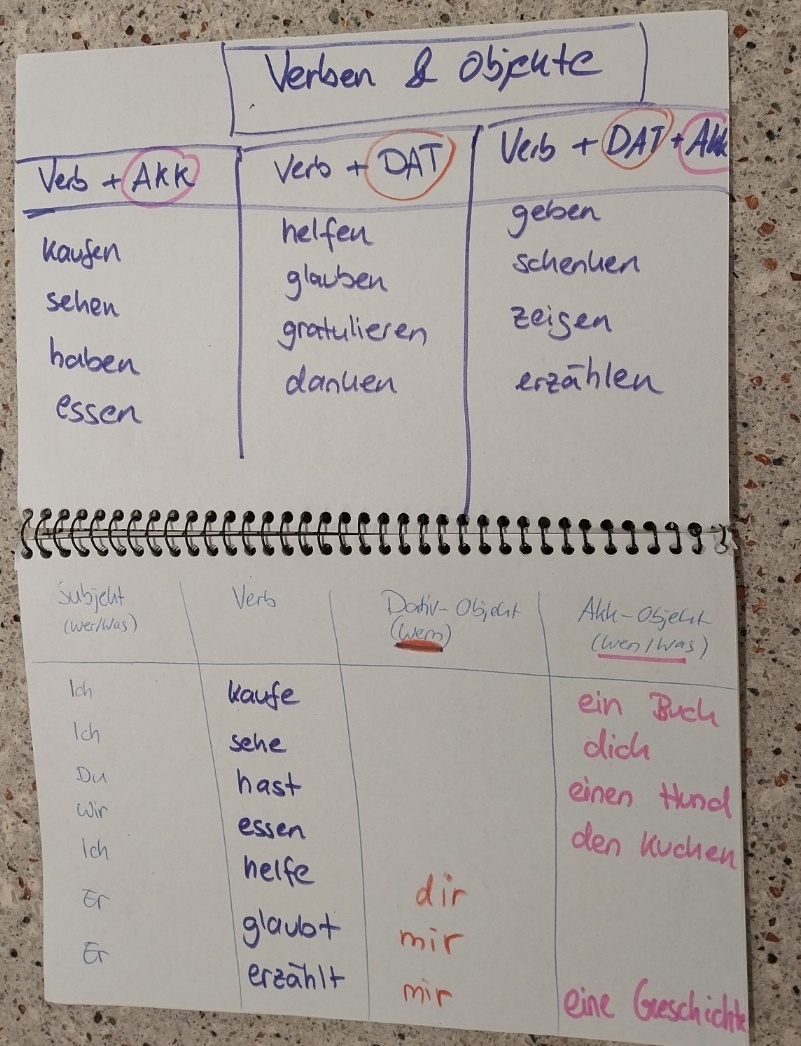 Verben & Objekte
Verb + AKK Verb + DAT Verb + DAT + Akk
kaufen helfen geben
sehen glauben schenken
haben gratulieren zeigen
essen danken erzählen
Subjekt Verb Dativ-Objekt Akk-Objekt
(wer/was) (wem) (wen/was)
Ich kaufe ein Buch
Ich sehe dich
Du hast einen Hund
Wir essen den Kuchen
Ich helfe dir
Er glaubt mir
Er erzählt mir eine Geschichte